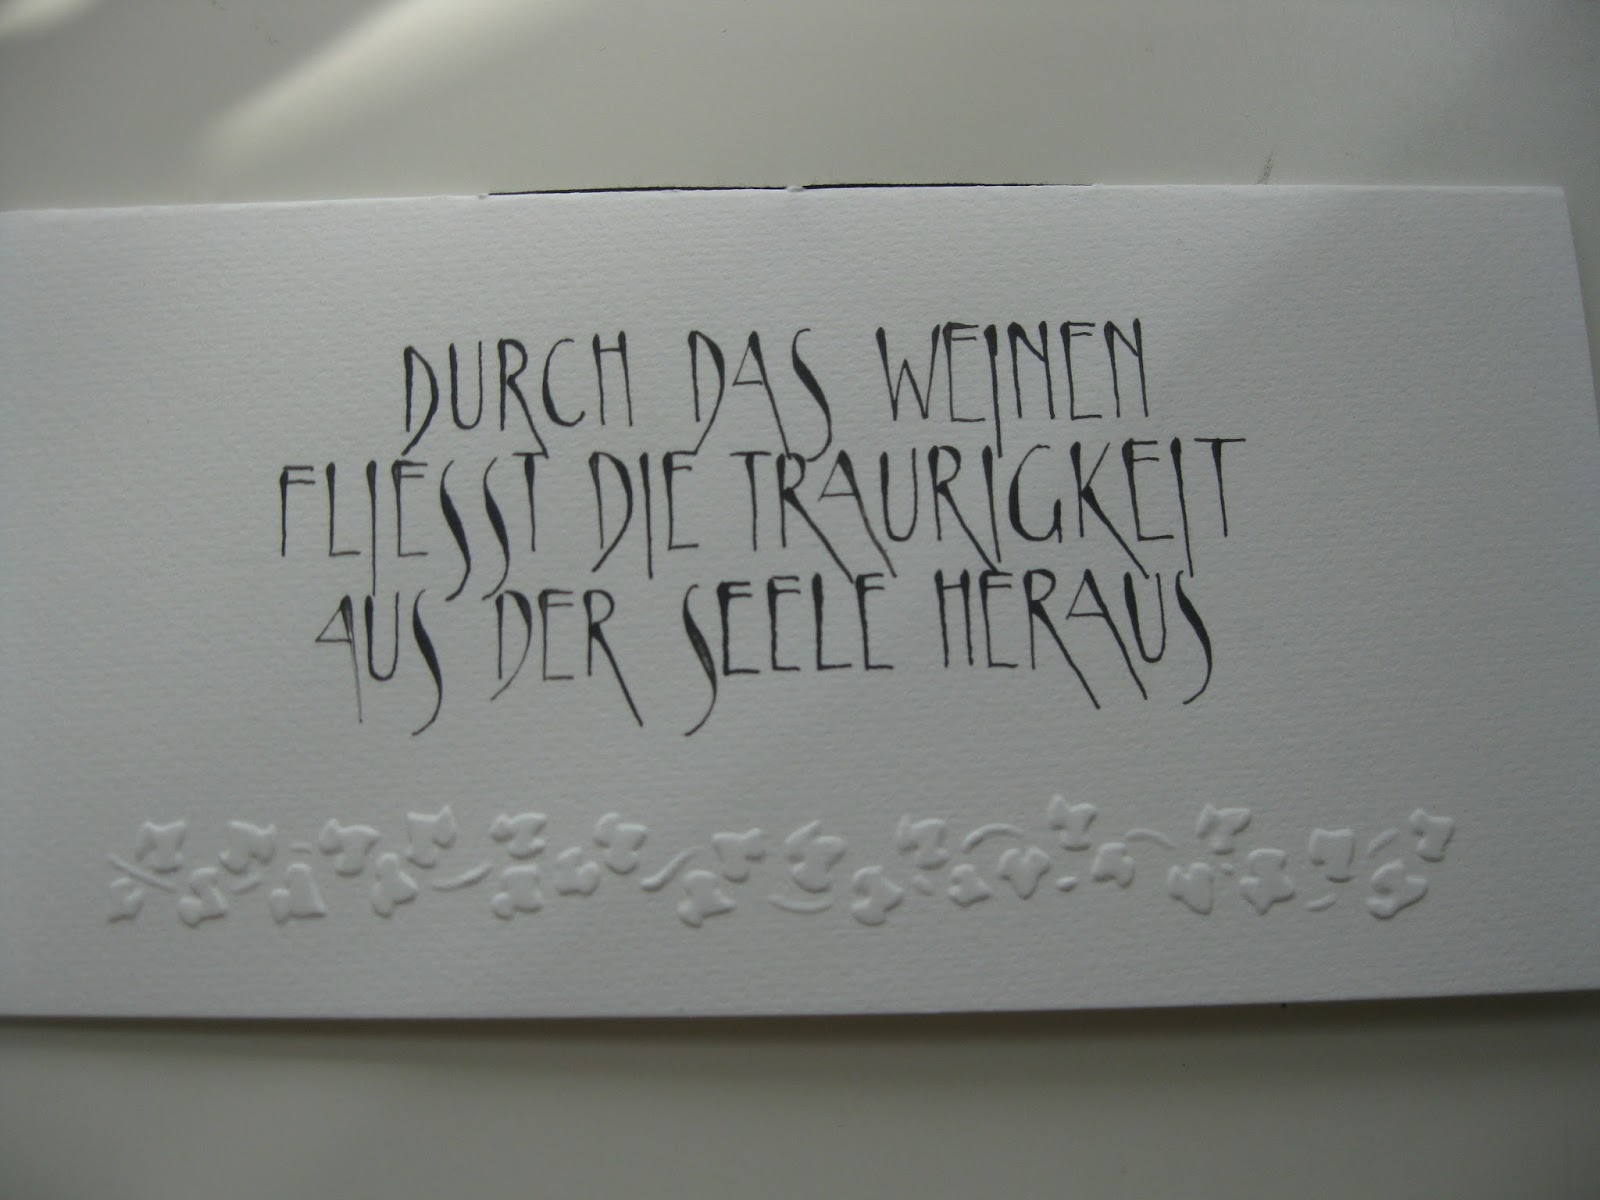 DURCH DAS WEINEN
FLIESST DIE TRAURIGKEIT
AUS DER SEELE HERAUS